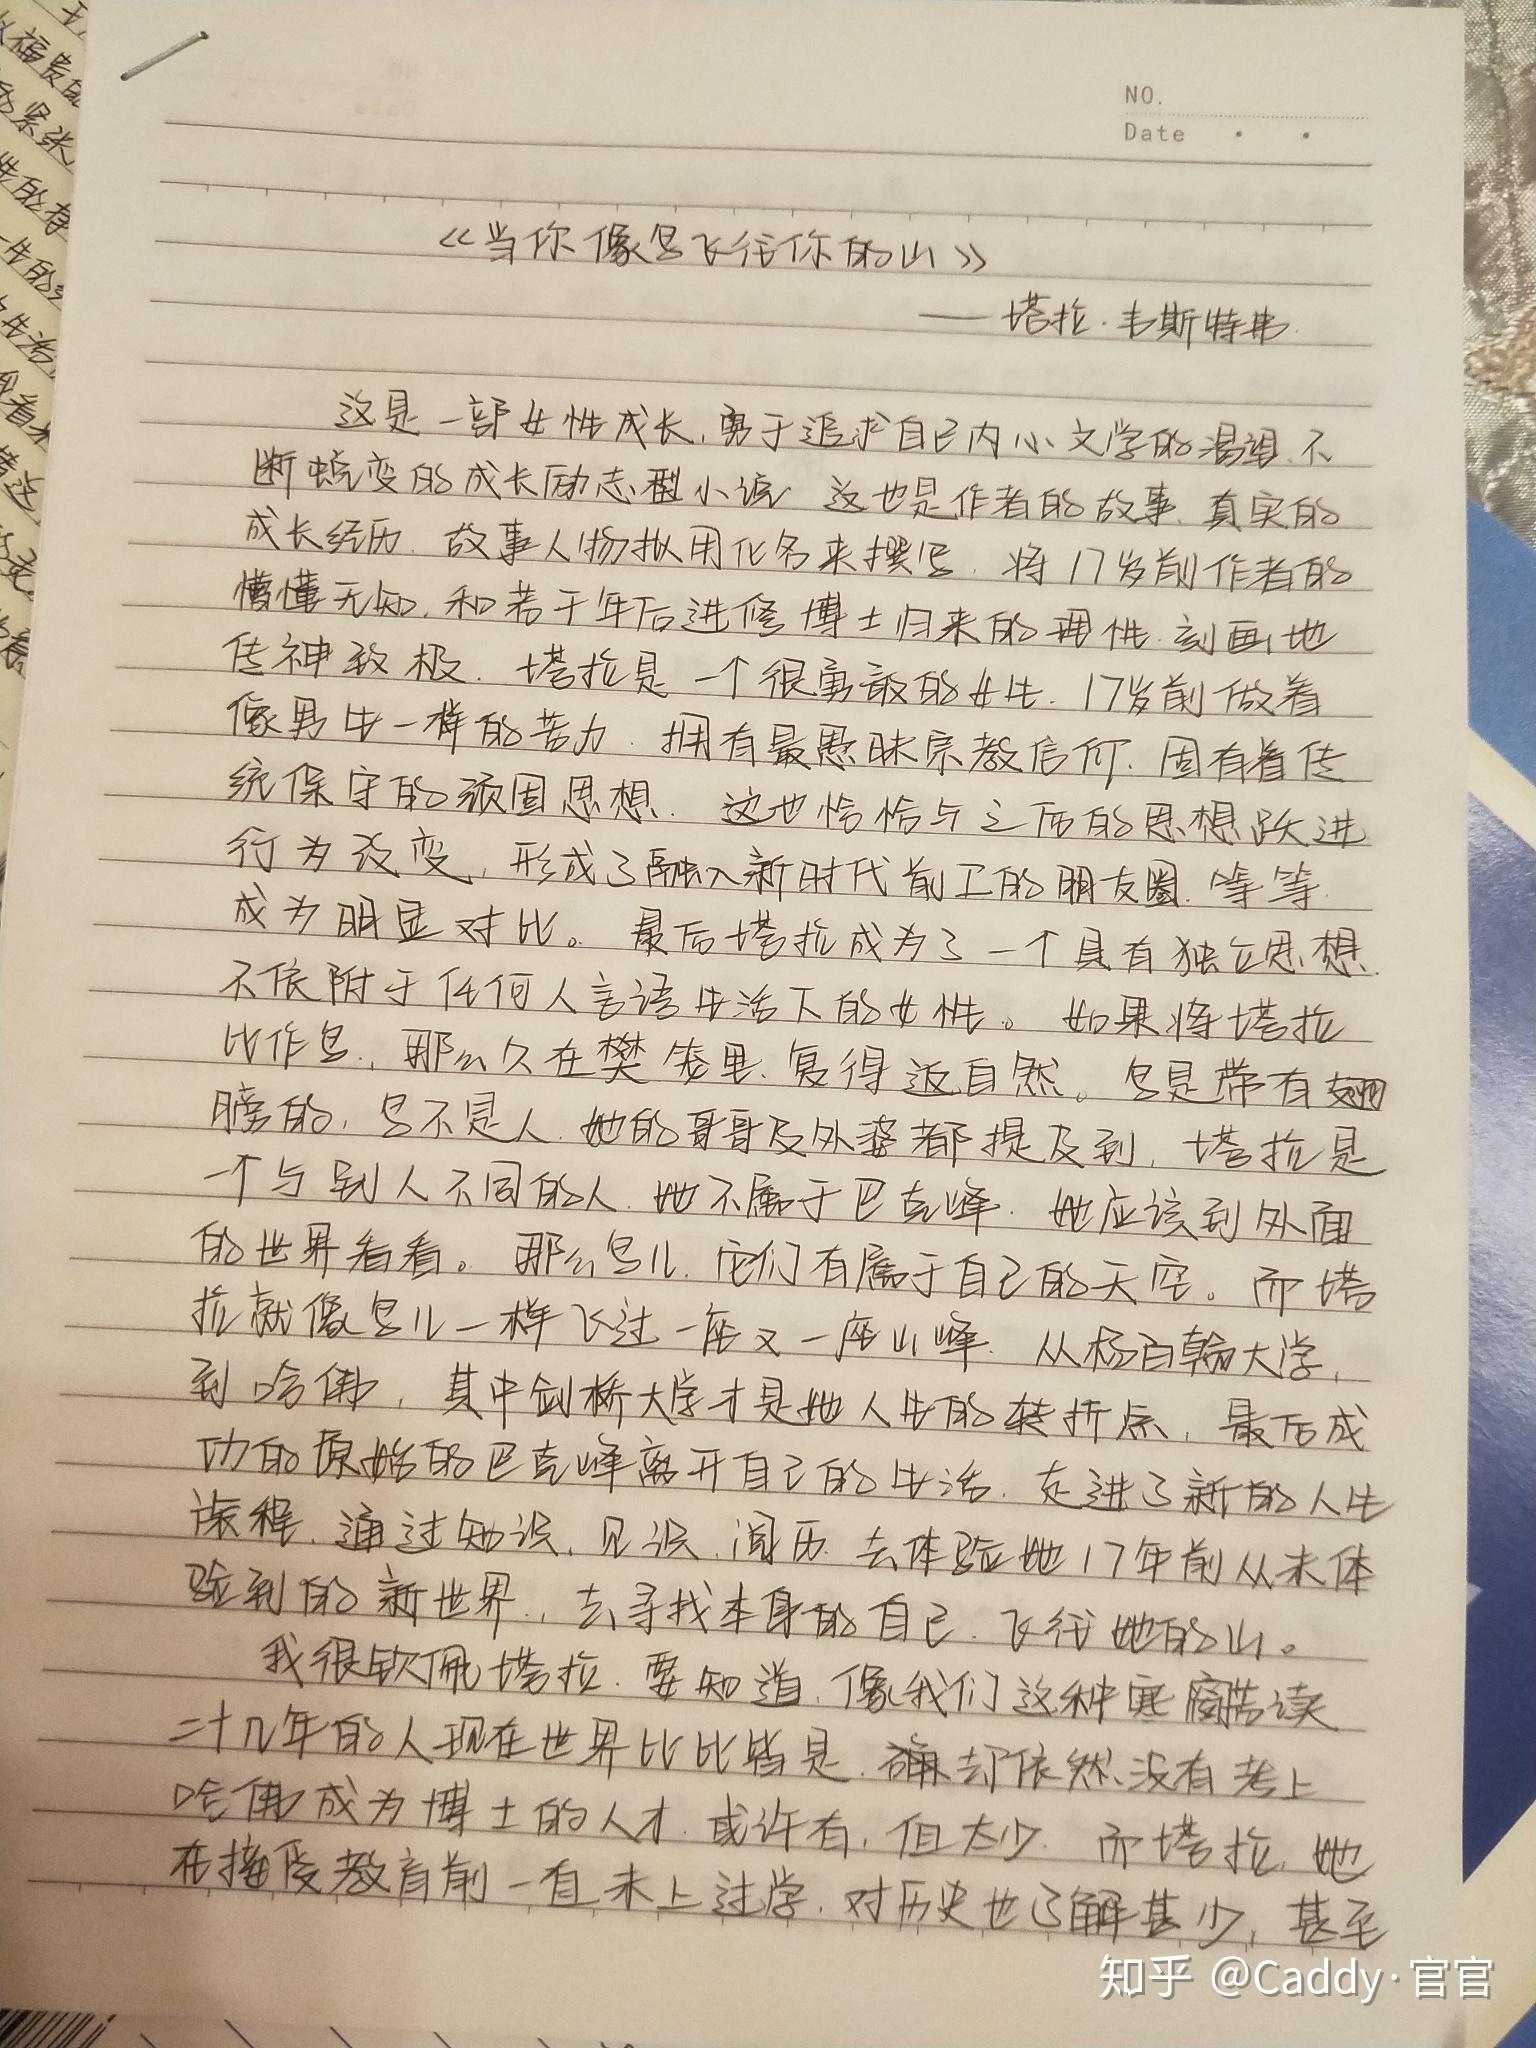 NO.
Date
《当你像鸟飞往你的山》
——塔拉·韦斯特弗
这是一部女性成长、勇于追求自己内心文学的渴望、不
断蜕变的成长励志型小说 这也是作者的故事、真实的
成长经历、故事人物拟用化名来撰写、将17岁前作者的
懵懂无知、和若干年后进修博士归来的理性、刻画地
传神致极、塔拉是一个很勇敢的女生、17岁前做着
像男生一样的苦力、拥有最愚昧宗教信仰、固有着传
统保守的顽固思想、这也恰恰与之后的思想跃进
行为改变，形成了融入新时代前卫的朋友圈、等等
成为明显对比。最后塔拉成为了一个具有独立思想、
不依附于任何人言语生活下的女性。如果将塔拉
比作鸟，那么久在樊笼里、复得返自然。鸟是带有翅
膀的，鸟不是人、她的哥哥及外婆都提及到，塔拉是
一个与别人不同的人、她不属于巴克峰、她应该到外面
的世界看看。那么鸟儿、它们有属于自己的天空。而塔
拉就像鸟儿一样飞过一座又一座山峰、从杨百翰大学，
到哈佛，其中剑桥大学才是她人生的转折点，最后成
功的原始的巴克峰离开自己的生活、走进了新的人生
旅程、通过知识、见识、阅历、去体验她17年前从未体
验到的新世界、去寻找本身的自己、飞往她的山。
我很钦佩塔拉、要知道、像我们这种寒窗苦读
二十几年的人现在世界比比皆是、却依然没有考上
哈佛成为博士的人才、或许有，但太少、而塔拉，她
在接受教育前一直未上过学、对历史也了解甚少，甚至
知乎 @Caddy·官官